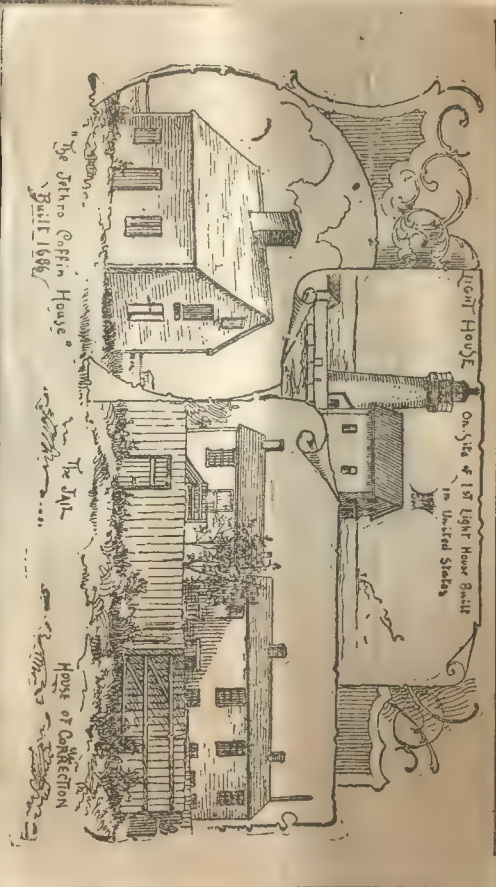 LIGHT HOUSE On-Site of 1st Light House Built
in United States
"The Jethro Coffin House"
Built 1686
The Jail
HOUSE OF CORRECTION